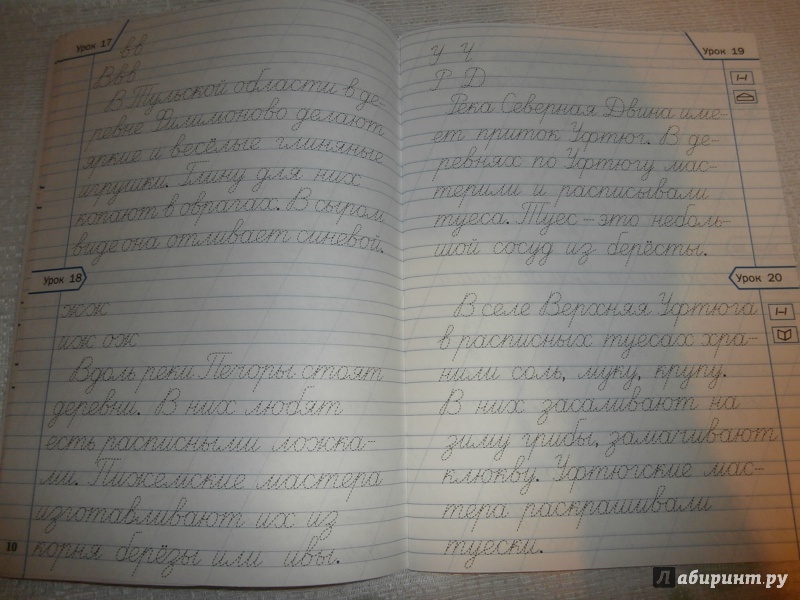 Урок 17
вв
Ввв
В Тульской области в де-
ревне Филимоново делают
яркие и весёлые глиняные
игрушки. Глину для них
копают в оврагах. В сыром
виде она отливает синевой.
Урок 18
жж
иж ож
Вдоль реки Печоры стоят
деревни. В них любят
есть расписными ложка-
ми. Пижемские мастера
изготавливают их из
корня берёзы или ивы.
10
Урок 19
У Ч
Р Д
Река Северная Двина име-
ет приток Уфтюг. В де-
ревнях по Уфтюгу мас-
терили и расписывали
туеса. Туес – это неболь-
шой сосуд из берёсты.
Урок 20
В селе Верхняя Уфтюга
в расписных туесах хра-
нили соль, муку, крупу.
В них засаливают на
зиму грибы, замачивают
клюкву. Уфтюгские мас-
тера раскрашивали
туески.
Лабиринт.ру